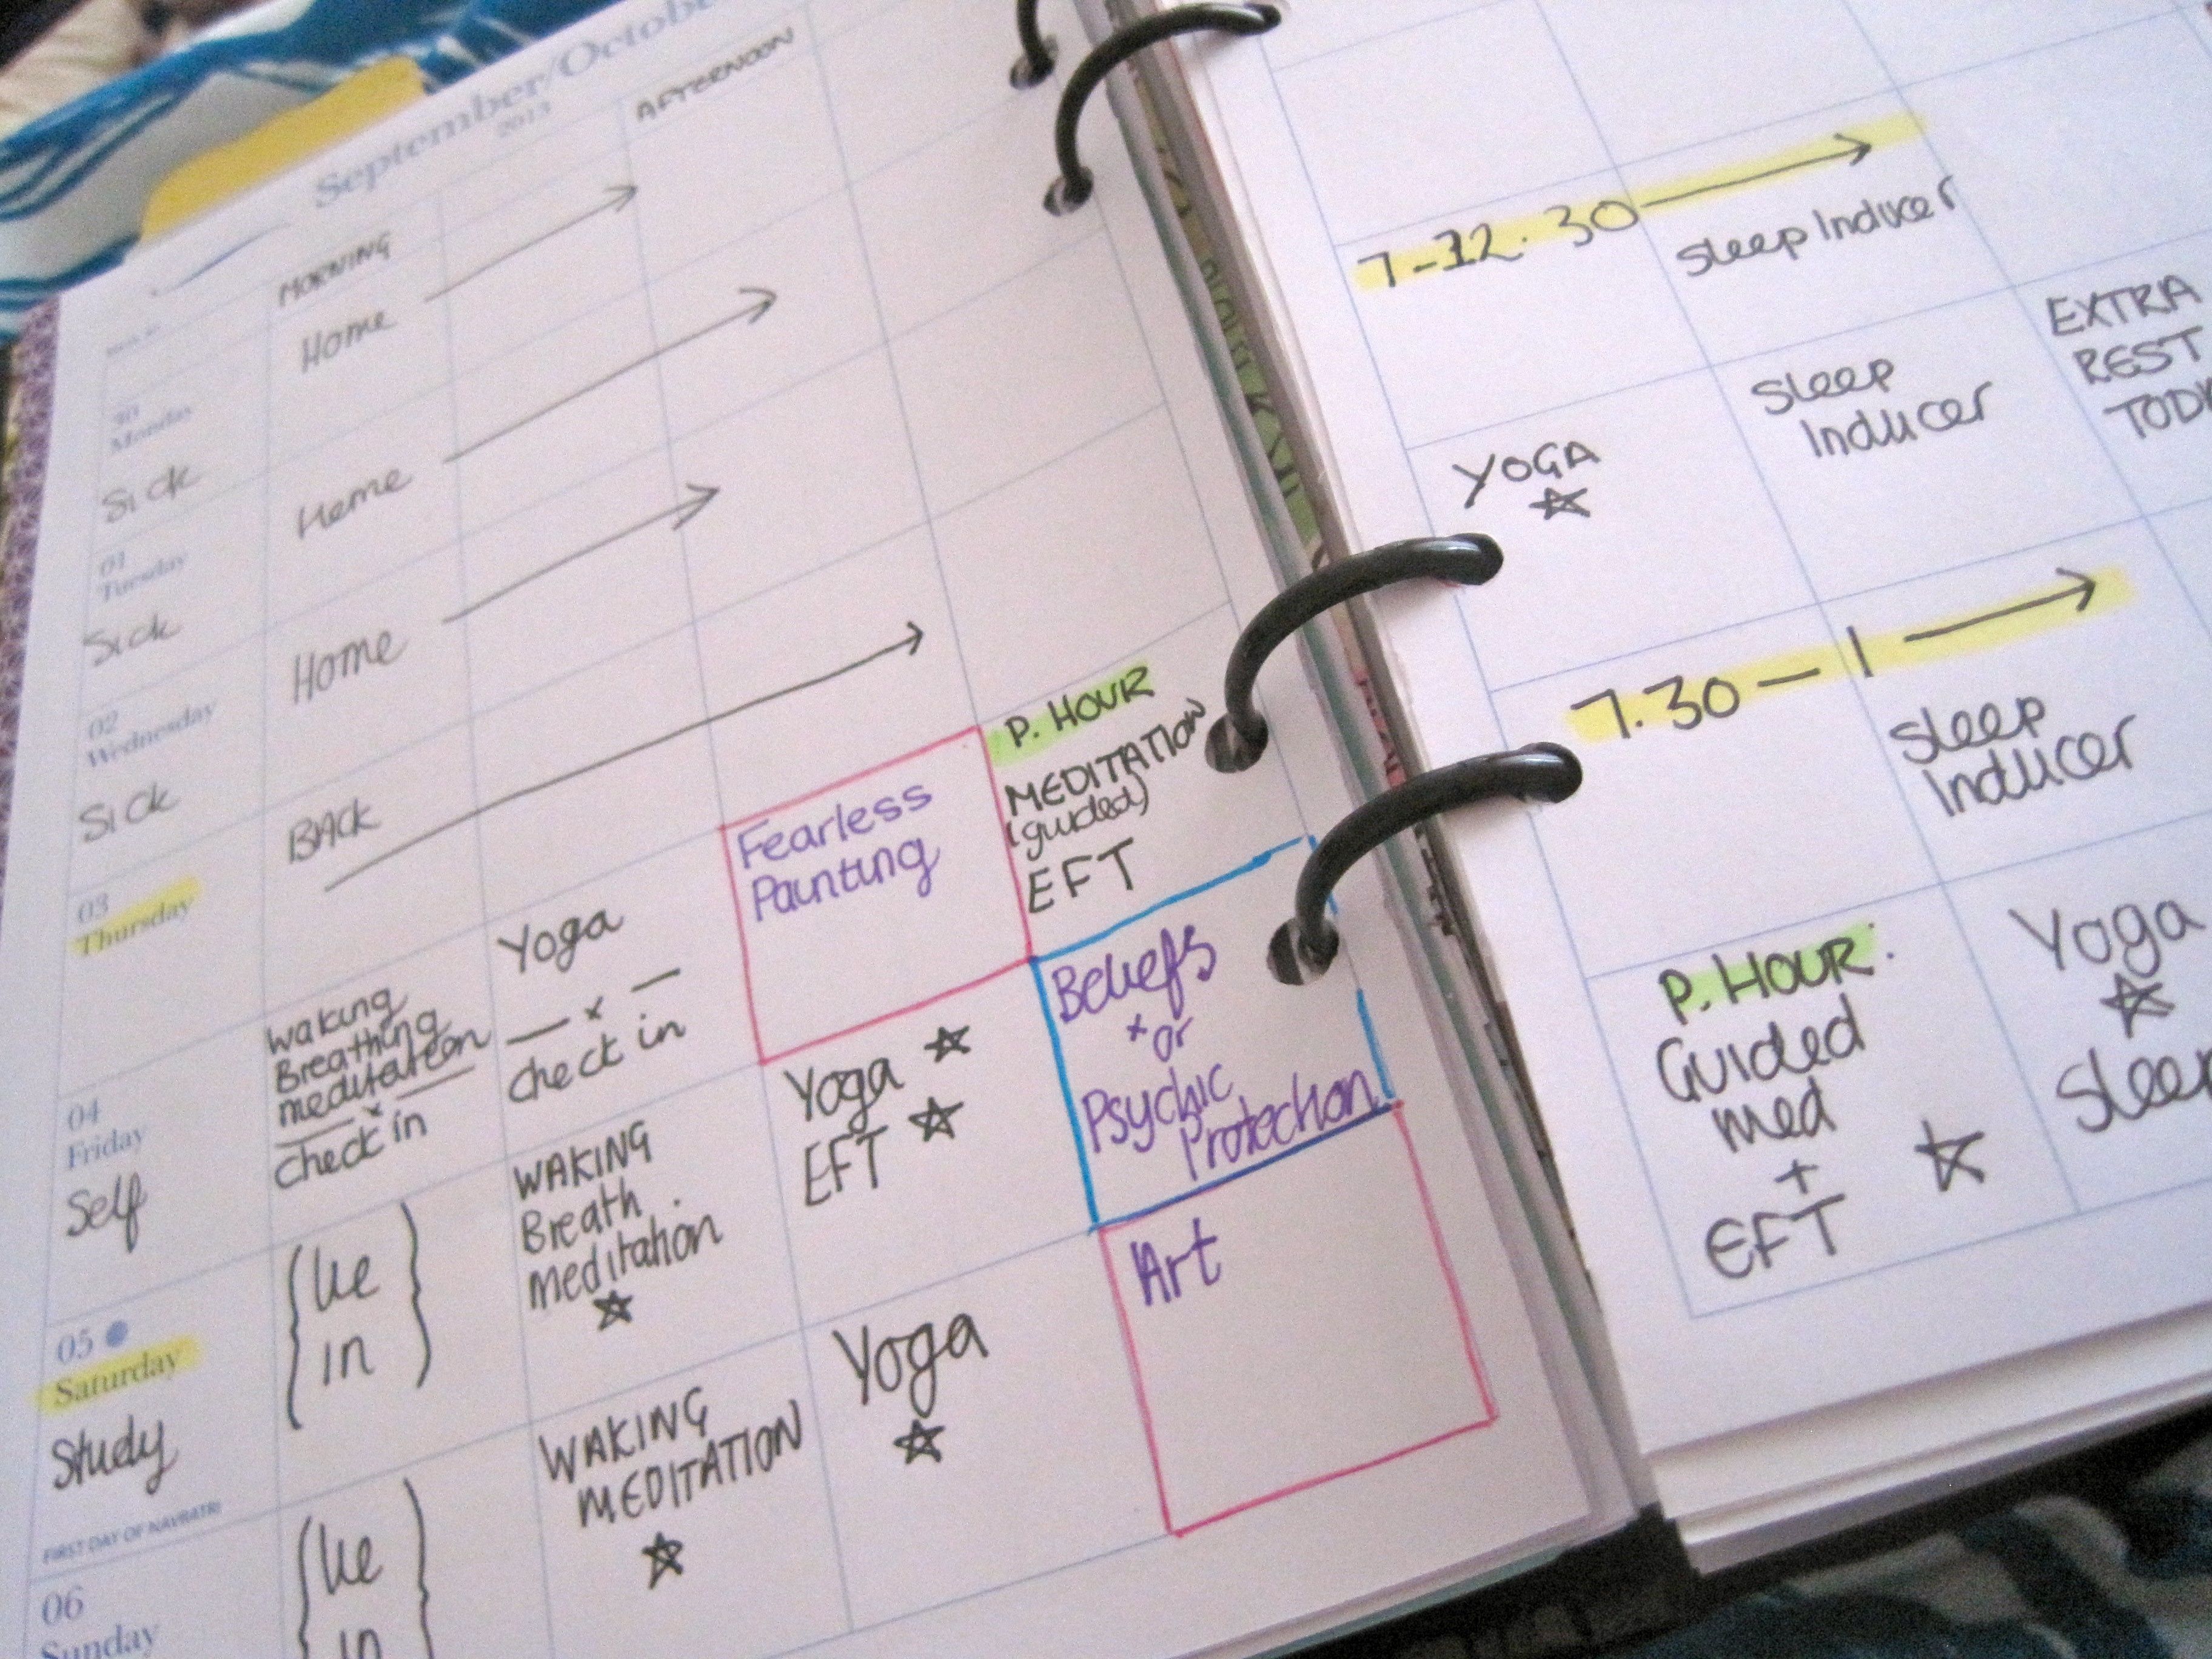 September/October
2013
MORNING
AFTERNOON
30
Monday
Sick
Home
01
Tuesday
Sick
Home
02
Wednesday
Sick
Home
03
Thursday
BACK
04
Friday
Self
Waking
Breathing
meditation
check in
Yoga
check in
Fearless
Painting
P. HOUR
MEDITATION
(guided)
EFT
05
Saturday
Study
FIRST DAY OF NAVRATRI
Lie
in
WAKING
Breath.
meditation
Yoga
EFT
Beliefs
+ or
Psychic
Protection
06
Sunday
Lie
in
WAKING
MEDITATION
Yoga
Art
7-12.30
Sleep Inducer
YOGA
Sleep
Inducer
EXTRA
REST
7.30 - 1
Sleep
Inducer
P. HOUR:
Guided
med
+
EFT
Yoga